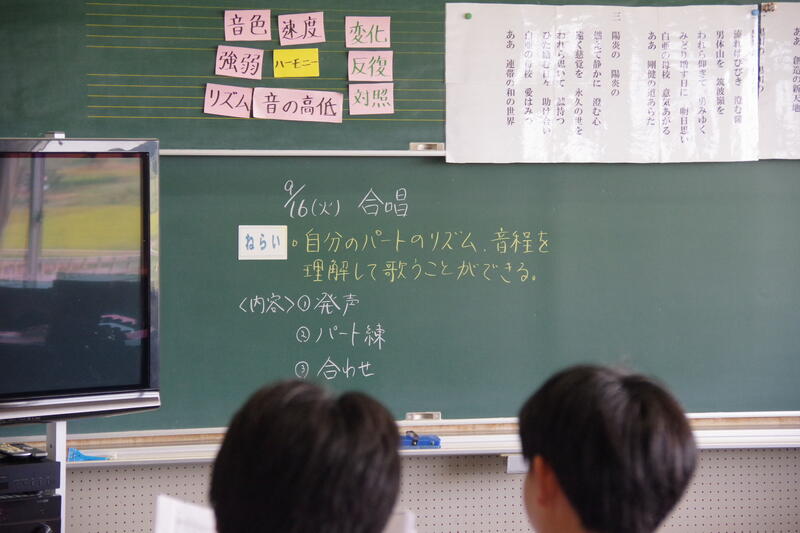 音色
速度
変化
強弱
ハーモニー
反復
リズム
音の高低
対照
9/16(火) 合唱
ねらい
。自分のパートのリズム、音程を
理解して歌うことができる。
〈内容〉①発声
②パート練
③合わせ
流れはひびき 澄む陽
男体山を 筑波嶺を
われら仰ぎて 勇みゆく
みどり増す日に 明日思い
白亜の母校 意気あがる
ああ 剛健の道あらた
三 陽炎の 陽炎の
澄む心
遠く慈覚を 永久の世を
われら思いて
ひた励む日々 助け合い
白亜の母校 愛はみつ
ああ 連帯の和の世界
ああ 創造の新天地